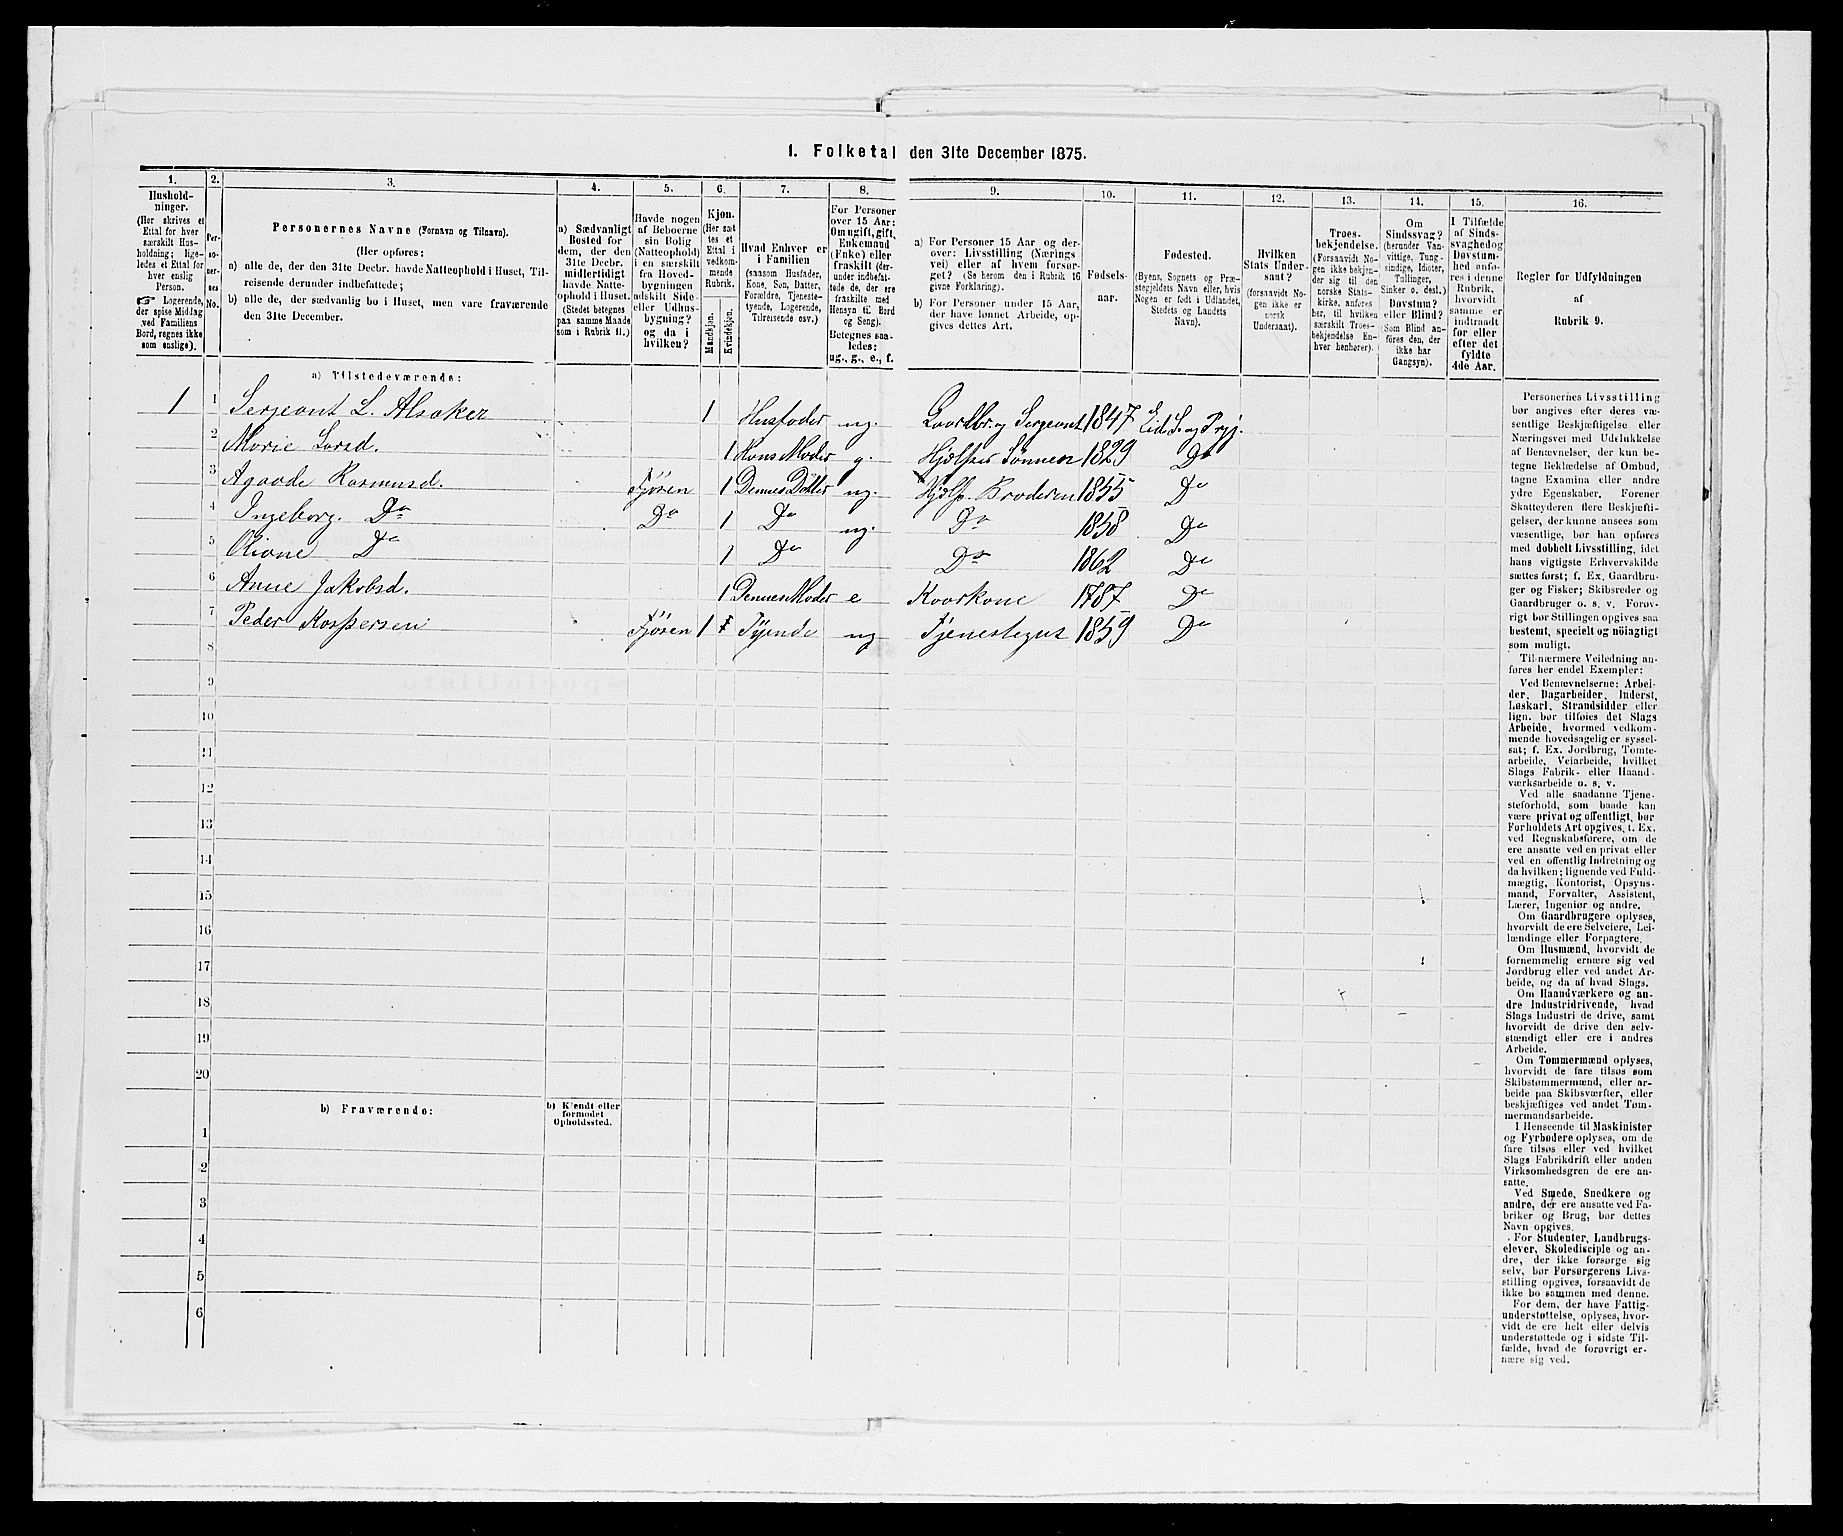 1. Folketal den 31te December 1875.
1. 2. 3. 4. 5. 6. 7. 8. 9. 10. 11. 12. 13. 14. 15. 16.
Hushold-
ninger.
(Her skrives et
Ettal for hver
særskilt Hus-
holdning; lige-
ledes et Ettal for
hver enslig
Person.
☞ Logerende,
der spise Middag
ved Familiens
Bord, regnes ikke
som enslige).
Per-
so-
ner-
nes
No.
Personernes Navne (Fornavn og Tilnavn).
(Her opføres:
a) alle de, der den 31te Decbr. havde Natteophold i Huset, Til-
reisende derunder indbefattede;
b) alle de, der sædvanlig bo i Huset, men vare fraværende
den 31te December.
a) Sædvanligt
Bosted for
dem, der den
31te Decbr.
midlertidigt
havde Natte-
ophold i Huset.
(Stedet betegnes
paa samme Maade
som i Rubrik 11.)
Havde nogen
af Beboerne
sin Bolig
(Natteophold)
i en særskilt
fra Hoved-
bygningen
adskilt Side-
eller Udhus-
bygning?
og da i
hvilken?
Kjøn.
(Her sæt
tes et
Ettal i
vedkom-
mende
Rubrik.
Mandkjøn.
Kvindekjøn.
Hvad Enhver er
i Familien
(saasom Husfader,
Kone, Søn, Datter,
Forældre, Tjeneste-
tyende, Logerende,
Tilreisende osv.)
For Personer
over 15 Aar:
Om ugift, gift,
Enkemand
(Enke) eller
fraskilt (der-
under indbefat-
tede de, der ere
fraskilte med
Hensyn til Bord
og Seng).
Betegnes saa-
ledes:
ug., g., e., f.
a) For Personer 15 Aar og der-
over: Livsstilling (Nærings
vei) eller af hvem forsør-
get? (Se herom den i Rubrik 16
givne Forklaring).
b) For Personer under 15 Aar,
der have lønnet Arbeide, op-
gives dettes Art.
Fødsels-
aar.
Fødested.
(Byens, Sognets og Præ-
stegjeldets Navn eller, hvis
Nogen er født i Udlandet,
Stedets og Landets
Navn).
Hvilken
Stats Under-
saat?
(forsaavidt No-
gen ikke er
norsk
Undersaat).
Troes-
bekjendelse.
(Forsaavidt No-
gen ikke bekjen-
der sig til den
norske Stats-
kirke, anføres
her, til hvilken
særskilt Troes-
bekjendelse En-
hver henhører).
Om
Sindssvag?
(herunder Van-
vittige, Tung-
sindige, Idioter,
Tullinger,
Sinker o. desl.)
Døvstum?
eller Blind?
(Som Blind an-
føres den, der
ikke har
Gangsyn).
I Tilfælde
af Sinds-
svaghed og
Døvstum-
hed anfø-
res i denne
Rubrik,
hvorvidt
samme er
indtraadt
før eller
efter det
fyldte
4de Aar.
Regler for Udfyldningen
af
Rubrik 9.
a) Tilstedeværende:
1 1 Sergeant L. Alsaker 1 Husfader ug. Gaardbr. og Sergeant 1847 Eid S. og Prgj.
2 Marie Larsd. 1 Hans Moder g. Hjælper Sønnen 1829 Do
3 Agaade Rasmusd. Fjösen 1 Dennes Datter ug. Hjelp. Broderen 1855 Do
4 Ingeborg Do Do 1 Do ug. Do 1858 Do
5 Oliane Do 1 Do Do 1862 Do
6 Anne Jakobsd. 1 Dennes Moder e Kaarkone 1787 Do
7 Peder Kaspersen Fjösen 1 Tyende ug Tjenestegut 1859 Do
8
9
10
11
12
13
14
15
16
17
18
19
20
b) Fraværende:
b) Kjendt eller
formodet
Opholdssted.
1
2
3
4
5
6
Personernes Livsstilling
bør angives efter deres væ-
sentlige Beskjæftigelse eller
Næringsvei med Udelukkelse
af Benævnelser, der kun be-
tegne Beklædelse af Ombud,
tagne Examina eller andre
ydre Egenskaber. Forener
Skatteyderen flere Beskjæfti-
gelser, der kunne ansees som
væsentlige, bør han opføres
med dobbelt Livsstilling, idet
hans vigtigste Erhvervskilde
sættes først; f. Ex. Gaardbru-
ger og Fisker; Skibsreder og
Gaardbruger o. s. v. Forøv-
rigt bør Stillingen opgives saa
bestemt, specielt og nöiagtigt
som muligt.
Til nærmere Veiledning an-
føres her endel Exempler:
Ved Benævnelserne: Arbei-
der, Dagarbeider, Inderst,
Løskarl, Strandsidder eller
lign. bør tilføies det Slags
Arbeide, hvormed vedkom-
mende hovedsagelig er syssel-
sat; f. Ex. Jordbrug, Tomte-
arbeide, Veiarbeide, hvilket
Slags Fabrik- eller Haand-
værksarbeide o. s. v.
Ved alle saadanne Tjene-
steforhold, som baade kan
være privat og offentligt, bør
Forholdets Art opgives, t. Ex.
ved Regnskabsførere, om de
ere ansatte ved en privat eller
ved en offentlig Indretning og
da hvilken; lignende ved Fuld-
mægtig, Kontorist, Opsyns-
mand, Forvalter, Assistent,
Lærer, Ingeniør og andre.
Om Gaardbrugere oplyses,
hvorvidt de ere Selveiere, Lei-
lændinge eller Forpagtere.
Om Husmænd, hvorvidt de
fornemmelig ernære sig ved
Jordbrug eller ved andet Ar-
beide, og da af hvad Slags.
Om Haandværkere og an-
dre Industridrivende, hvad
Slags Industri de drive, samt
hvorvidt de drive den selv-
stændigt eller ere i andres
Arbeide.
Om Tømmermænd oplyses,
hvorvidt de fare tilsøs som
Skibstømmermænd, eller ar-
beide paa Skibsværfter, eller
beskjæftiges ved andet Tøm-
mermandsarbeide.
I Henseende til Maskinister
og Fyrbødere oplyses, om de
fare tilsøs eller ved hvilket
Slags Fabrikdrift eller anden
Virksomhedsgren de ere an-
satte.
Ved Smede, Snedkere og
andre, der ere ansatte ved Fa-
briker og Brug, bør dettes
Navn opgives.
For Studenter, Landbrugs-
elever, Skoledisciple og an-
dre, der ikke forsørge sig
selv, bør Forsørgerens Livs-
stilling opgives, forsaavidt de
ikke bo sammen med denne.
For dem, der have Fattig-
understøttelse, oplyses, hvor-
vidt de ere helt eller delvis
understøttede og i sidste Til-
fælde, hvad de forøvrigt er-
nære sig ved.